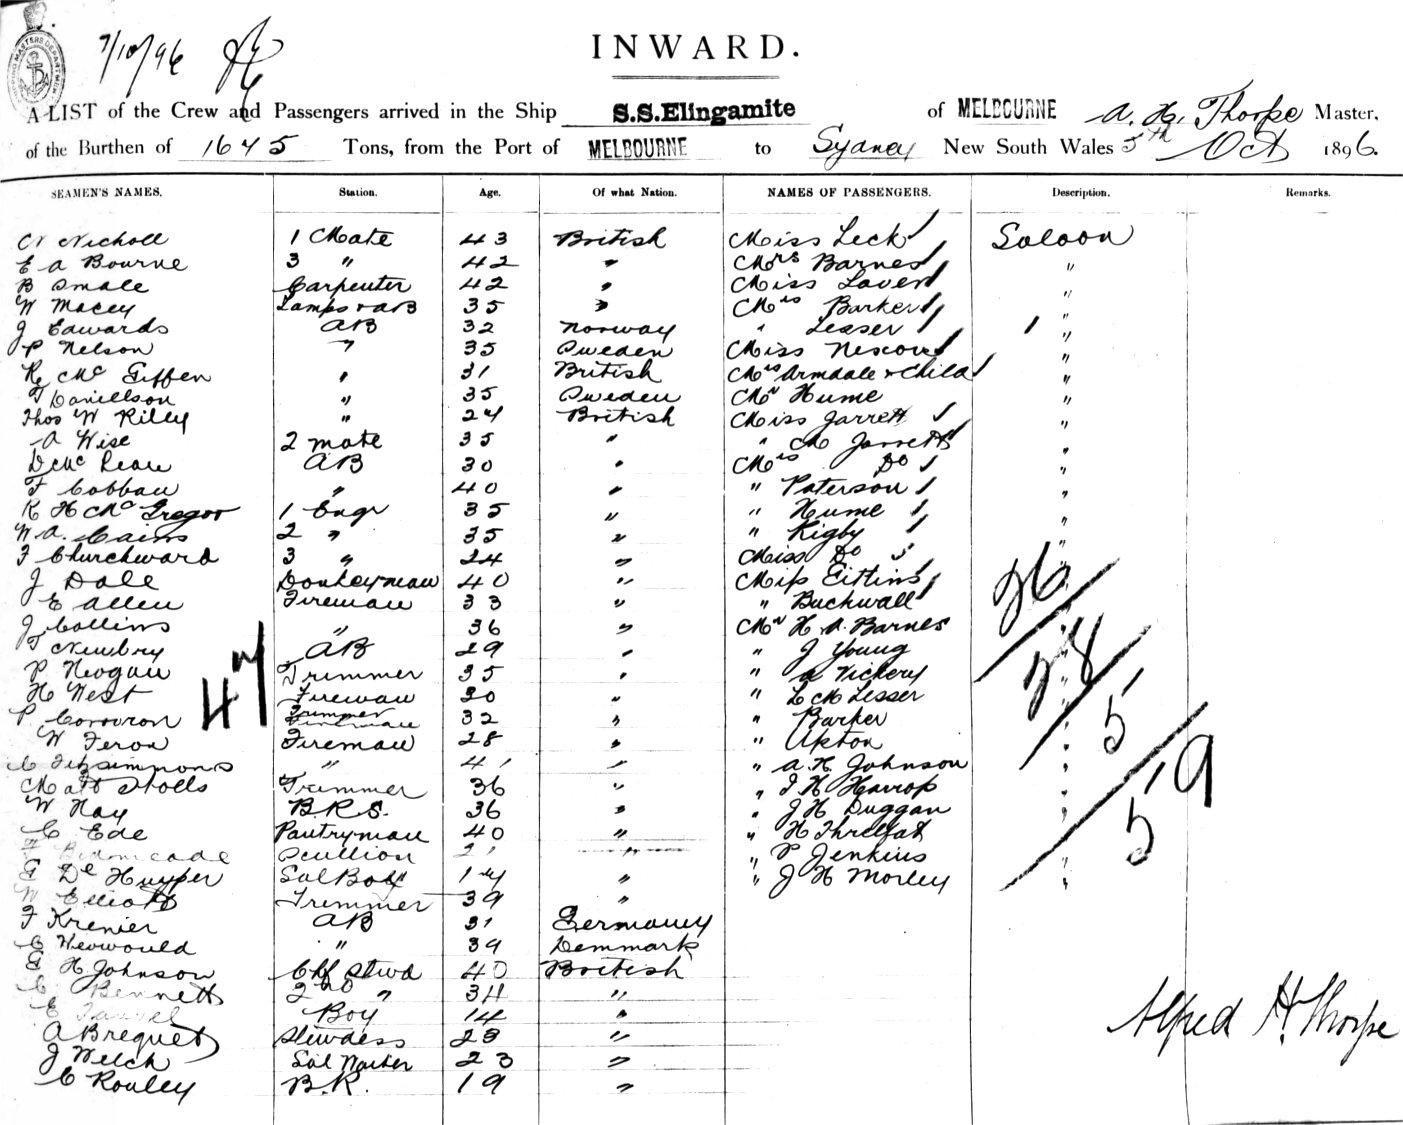 7/10/96
INWARD.
A LIST of the Crew and Passengers arrived in the Ship S.S. Elingamite of MELBOURNE A. H. Thorpe Master,
of the Burthen of 1675 Tons, from the Port of MELBOURNE to Sydney New South Wales 5th Oct 1896.
SEAMEN'S NAMES. Station. Age. Of what Nation. NAMES OF PASSENGERS. Description. Remarks.
Nicholl 1 Mate 43 British Miss Leck Saloon
E A Bourne 3 " 42 " Mrs Barnes "
B Smale Carpenter 42 " Miss Laver "
W Macey Lamps & AB 35 " Mrs Barker "
J Edwards AB 32 Norway " Lesser "
P Nelson " 35 Sweden Miss "
R Mc Giffen " 31 British Mrs Armdale & Child "
T Daniellson " 35 Sweden Mr Hume "
Thos W Rilly " 24 British Miss Jarrett "
A Wise 2 mate 35 " " M Jarrett "
D Mc AB 30 " Mrs Do "
F Cobban " 40 " " Paterson "
R H McGregor 1 Engr 35 " " Hume "
W A. Cains 2 " 35 " " Rigby "
F Churchward 3 " 24 " Miss Do
J Dale Donkeyman 40 " Miss Eittins 26
E Allen Fireman 33 " " Buckwall
J Collins " 36 " Mr H. A. Barnes
T Newbry AB 29 " " J Young 28
P Keogan Trimmer 35 " " A Vickery
H West Fireman 30 " " L M Lesser 5
47
P Corcoron Trimmer 32 " " Barker
W Feron Fireman 28 " " Upton
C Fitzsimmons " 41 " " A. H. Johnson 59
Matt Holls Trimmer 36 " " J H Harrop
W Hay B.R.S. 36 " " J H Duggan 5
C Ede Pantryman 40 " " H Threlfat
Scullion " " P Jenkins "
E De Huyper Sal Boy 17 " " J H Morley "
W Elliott Trimmer 39 "
F Krenier AB 31 Germany
C " 39 Denmark
E H. Johnson Chf Stwd 40 British
C. Bennett 2nd " 34 "
E Boy 14 "
A Breguet Stewdess 28 "
J Welch Sal Waiter 23 "
C Rouley B.R. 19 "
Alfred H. Thorpe